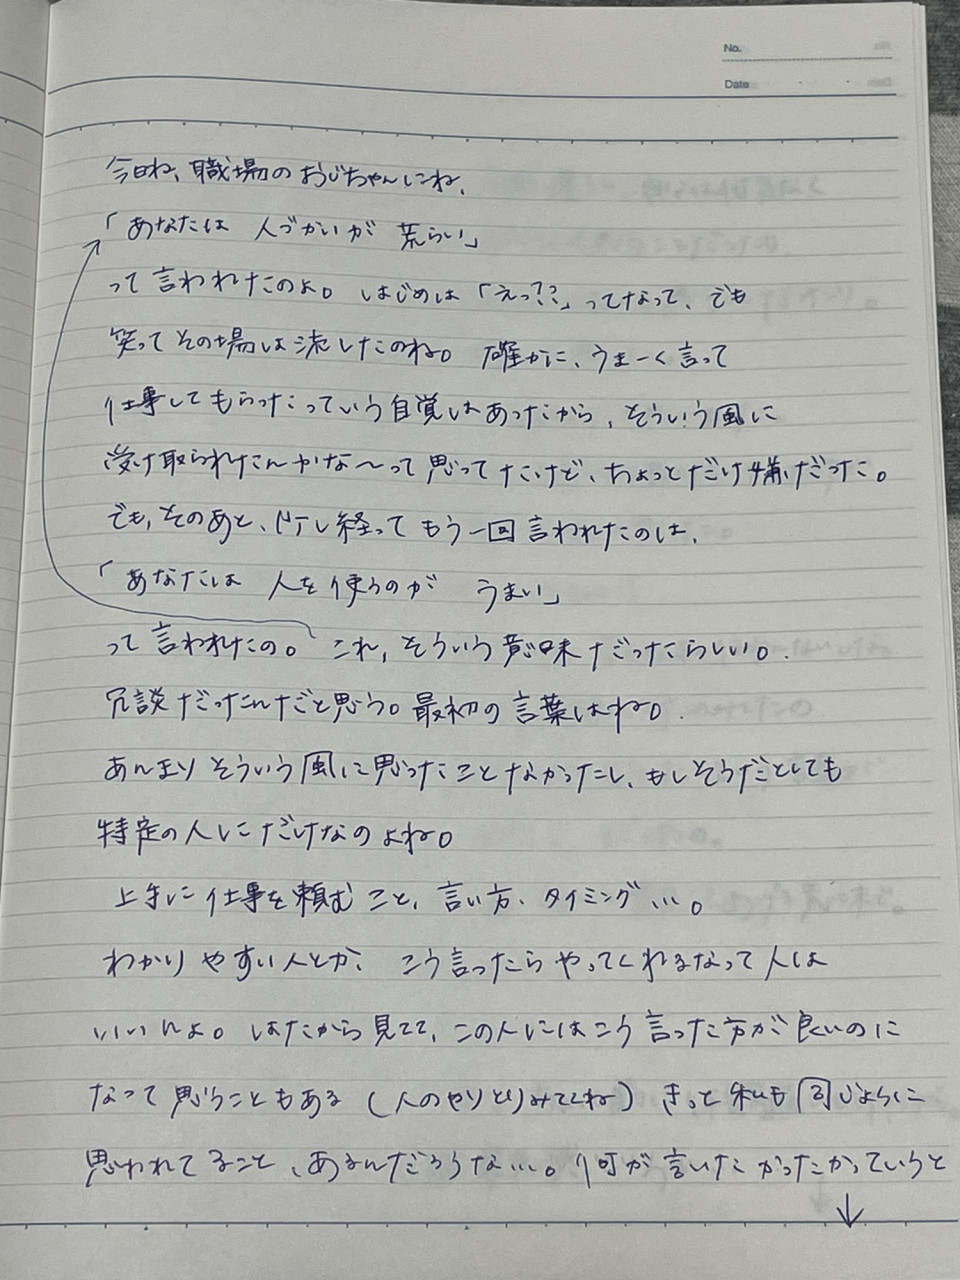 No.
Date
今日ね、職場のおじちゃんにね、
「あなたは 人づかいが 荒らい」
って言われたのよ。はじめは「えっ??」ってなって、でも
笑ってその場は流したのね。確かに、うまーく言って
仕事してもらったっていう自覚はあったから、そういう風に
受け取られたんかな〜って思ってたけど、ちょっとだけ嫌だった。
でも、そのあと、少し経ってもう一回言われたのは、
「あなたは 人を使うのが うまい」
って言われたの。これ、そういう意味だったらしい。
冗談だったんだと思う。最初の言葉はね。
あんまりそういう風に思ったことなかったし、もしそうだとしても
特定の人にだけなのよね。
上手に仕事を頼むこと、言い方、タイミング…。
わかりやすい人とか、こう言ったらやってくれるなって人は
いいんよ。はたから見てて、この人にはこう言った方が良いのに
なって思うこともある(人のやりとりみててね)きっと私も同じように
思われてること、あるんだろうな…。何が言いたかったかっていうと
↓